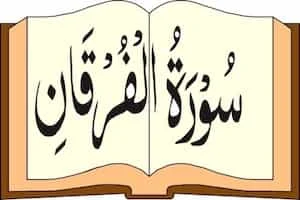 سُورَةُ الْفُرْقَانِ